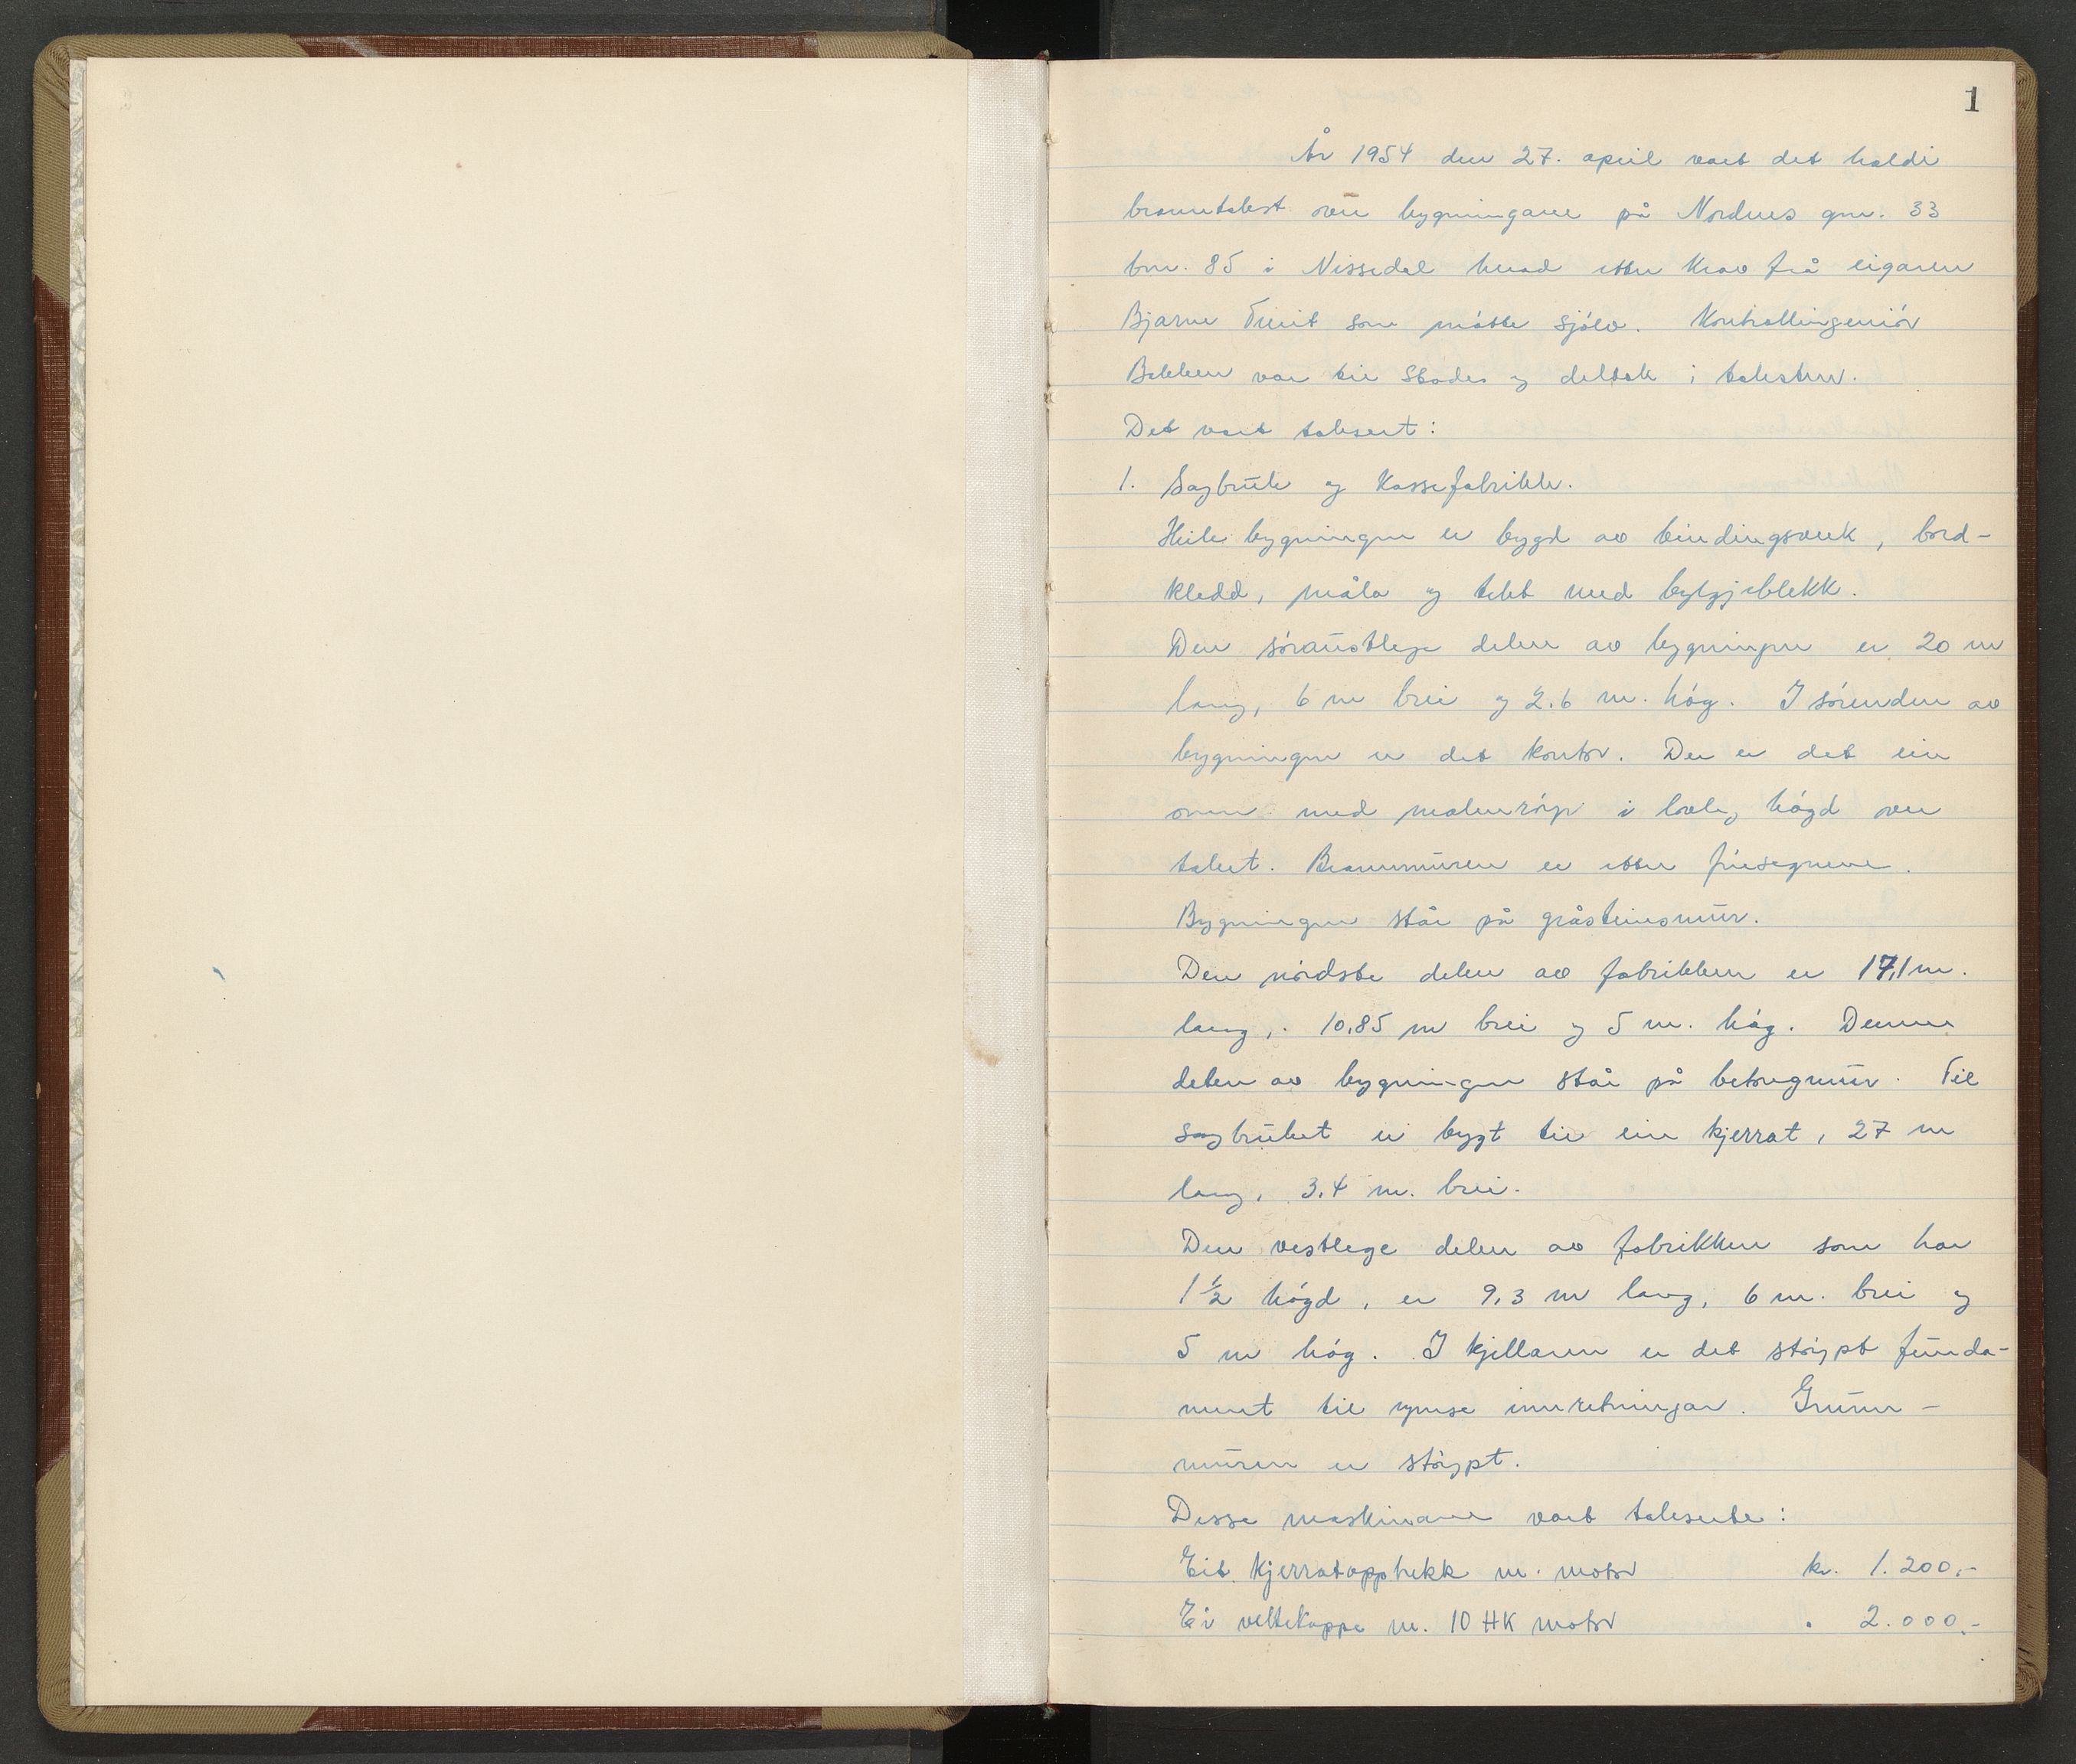 1
År 1954 den 27. april vart det haldi
branntakst over bygningane på Nordnes gnr. 33
bnr. 85 i Nissedal herad etter krav frå eigaren
Bjarne Tveit som møtte sjølv. Kontrollingeniør
Bakken var til stades og deltok i taksten.
Det vart taksert:
1. Sagbruk og kassefabrikk.
Heile bygningen er bygd av bindingsverk, bord-
kledd, måla og tekt med bylgjeblekk.
Den søraustlege delen av bygningen er 20 m
lang, 6 m brei og 2.6 m. høg. I sørenden av
bygningen er det kontor. Der er det ein
omn med malmrøyr i lovleg høgd over
taket. Brannmuren er etter føresegnene.
Bygningen står på gråsteinsmur.
Den nordste delen av fabrikken er 17,1 m.
lang, 10,85 m brei og 5 m. høg. Denne
delen av bygningen står på betongmur. Til
sagbruket er bygt til ein kjerrat, 27 m
lang, 3,4 m. brei.
Den vestlege delen av fabrikken som har
1 1/2 høgd, er 9,3 m lang, 6 m. brei og
5 m høg. I kjellaren er det støypt funda-
ment til ymse innretningar. Grunn-
muren er støypt.
Desse maskinane vart takserte:
Eit kjerratopptrekk m. motor kr. 1.200,-
Ei veltekappe m. 10 HK motor " 2.000,-